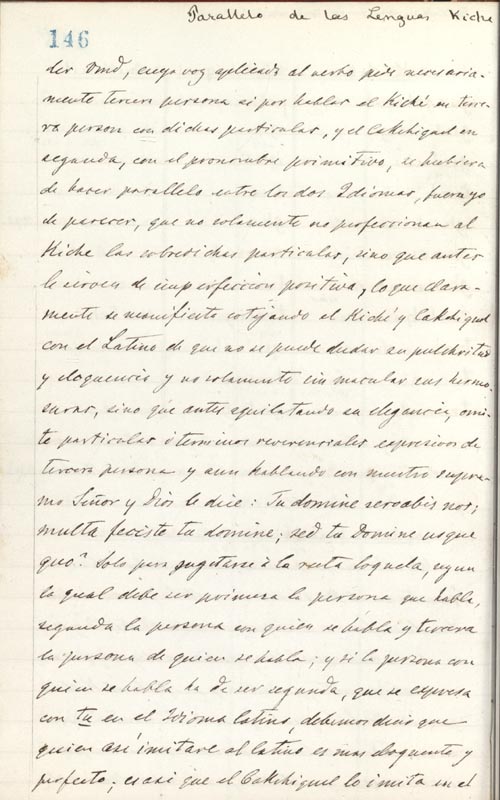 Parallelo de las Lenguas Kiche
146
der Vmd, cuya voz aplicada al verbo pide necesaria-
mente tercera persona si por hablar el Kiché en terce-
ra person con dichas particulas, y el Cakchiquel en
segunda, con el pronombre primitivo, se hubiera
de hacer parallelo entre los dos Idiomas, fuera yo
de parecer, que no solamente no perfeccionan al
Kiche las sobredichas particulas, sino que antes
le sirven de imperfeccion positiva, lo que clara-
mente se manifiesta cotejando el Kiché y Cakchiquel
con el Latino de que no se puede dudar su pulchritud
y eloquencia y no solamente sin macular sus hermo-
suras, sino que antes aquilatando su elegancia, omi-
te particulas ó terminos reverenciales expresivos de
tercera persona y aun hablando con nuestro supre-
mo Señor y Dios le dice: Tu domine servabis nos;
multa feciste tu domine; sed tu Domine usque
quo? Solo para sugetarse à la recta loquela, segun
la qual debe ser primera la persona que habla,
segunda la persona con quien se habla y tercera
la persona de quien se habla; y si la persona con
quien se habla ha de ser segunda, que se espresa
con tu en el Idioma latino, debemos decir que
quien asi imitare al latino es mas eloquente y
perfecto; es asi que el Cakchiquel lo imita en el